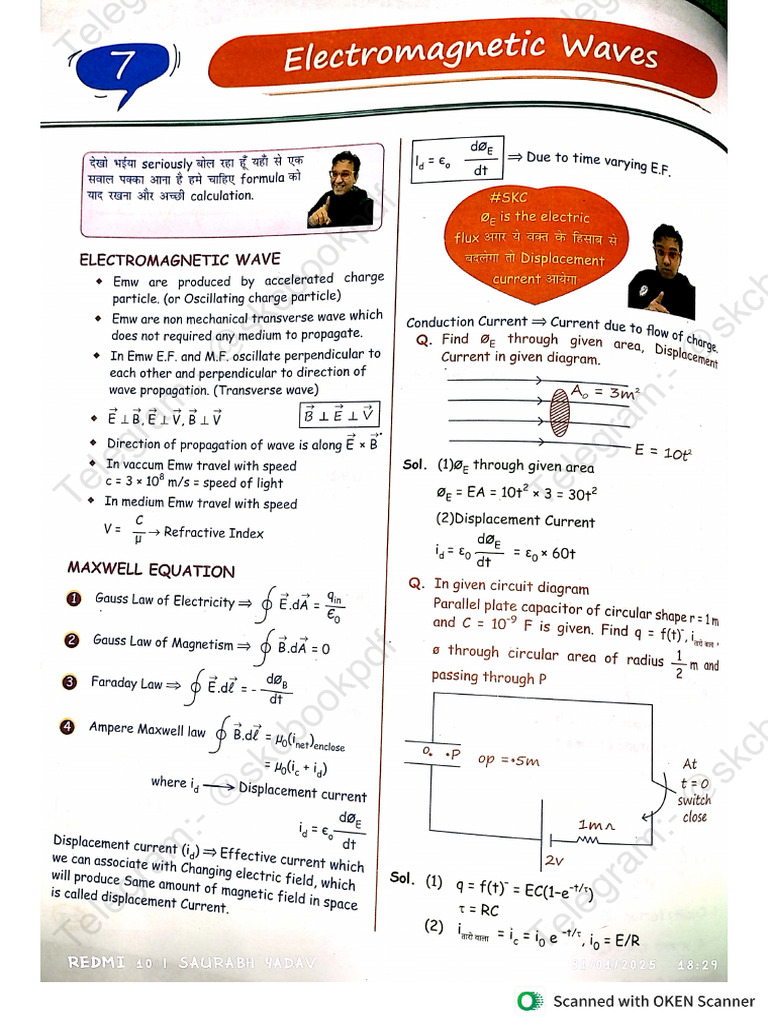 7
Electromagnetic Waves
देखो भईया seriously बोल रहा हूँ यहाँ से एक
सवाल पक्का आना है हमे चाहिए formula को
याद रखना और अच्छी calculation.
ELECTROMAGNETIC WAVE
❖ Emw are produced by accelerated charge
particle. (or Oscillating charge particle)
❖ Emw are non mechanical transverse wave which
does not required any medium to propagate.
❖ In Emw E.F. and M.F. oscillate perpendicular to
each other and perpendicular to direction of
wave propagation. (Transverse wave)
❖ E⃗ ⊥ B⃗, E⃗ ⊥ V⃗, B⃗ ⊥ V⃗ B⃗ ⊥ E⃗ ⊥ V⃗
❖ Direction of propagation of wave is along E⃗ × B⃗
❖ In vaccum Emw travel with speed
c = 3 × 10⁸ m/s = speed of light
❖ In medium Emw travel with speed
V = C/μ → Refractive Index
MAXWELL EQUATION
1 Gauss Law of Electricity ⇒ ∮ E⃗.dA⃗ = q_in/ε₀
2 Gauss Law of Magnetism ⇒ ∮ B⃗.dA⃗ = 0
3 Faraday Law ⇒ ∮ E⃗.dℓ⃗ = - dø_B/dt
4 Ampere Maxwell law ∮ B⃗.dℓ⃗ = μ₀(i_net)enclose
= μ₀(i_c + i_d)
where i_d ⟶ Displacement current
i_d = ε₀ dø_E/dt
Displacement current (i_d) ⇒ Effective current which
we can associate with Changing electric field, which
will produce Same amount of magnetic field in space
is called displacement Current.
I_d = ε₀ dø_E/dt ⇒ Due to time varying E.F.
#SKC
ø_E is the electric
flux अगर ये वक्त के हिसाब से
बदलेगा तो Displacement
current आयेगा
Conduction Current ⇒ Current due to flow of charge.
Q. Find ø_E through given area, Displacement
Current in given diagram.
A₀ = 3m²
E = 10t²
Sol. (1)ø_E through given area
ø_E = EA = 10t² × 3 = 30t²
(2)Displacement Current
i_d = ε₀ dø_E/dt = ε₀ × 60t
Q. In given circuit diagram
Parallel plate capacitor of circular shape r = 1 m
and C = 10⁻⁹ F is given. Find q = f(t)⁻, i_तारो वाला,
ø through circular area of radius 1/2 m and
passing through P
O. .P op = .5m
At
t = 0
switch
close
1mΩ
2v
Sol. (1) q = f(t)⁻ = EC(1-e^-t/τ)
τ = RC
(2) i_तारो वाला = i_c = i₀ e^-t/τ, i₀ = E/R
Telegram:- @skcbookpdf
REDMI 10 | SAURABH YADAV
31/01/2025 18:29
Scanned with OKEN Scanner